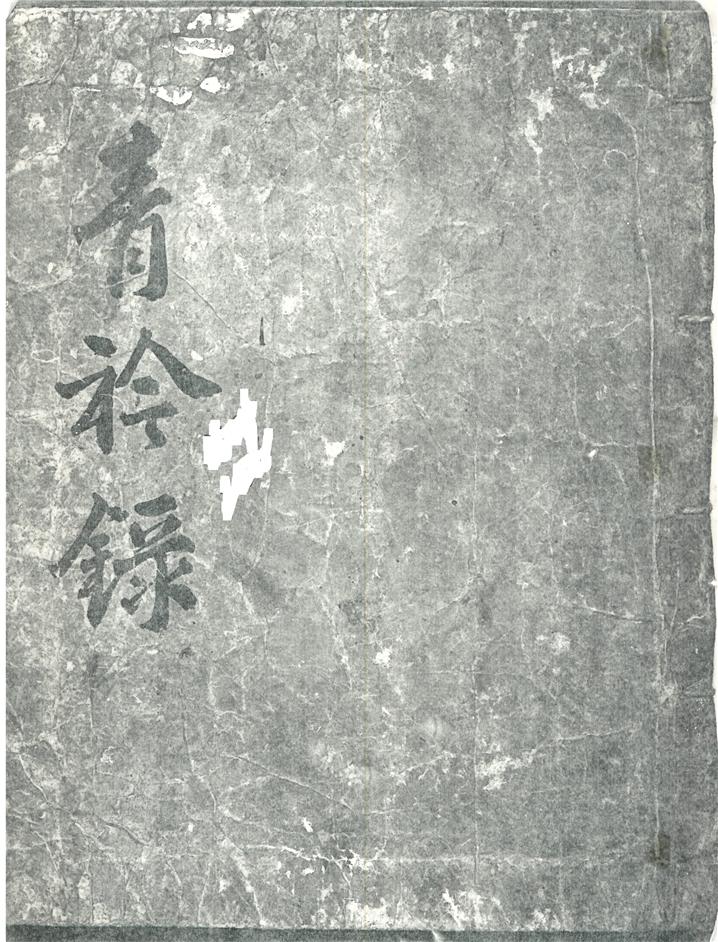 青衿錄